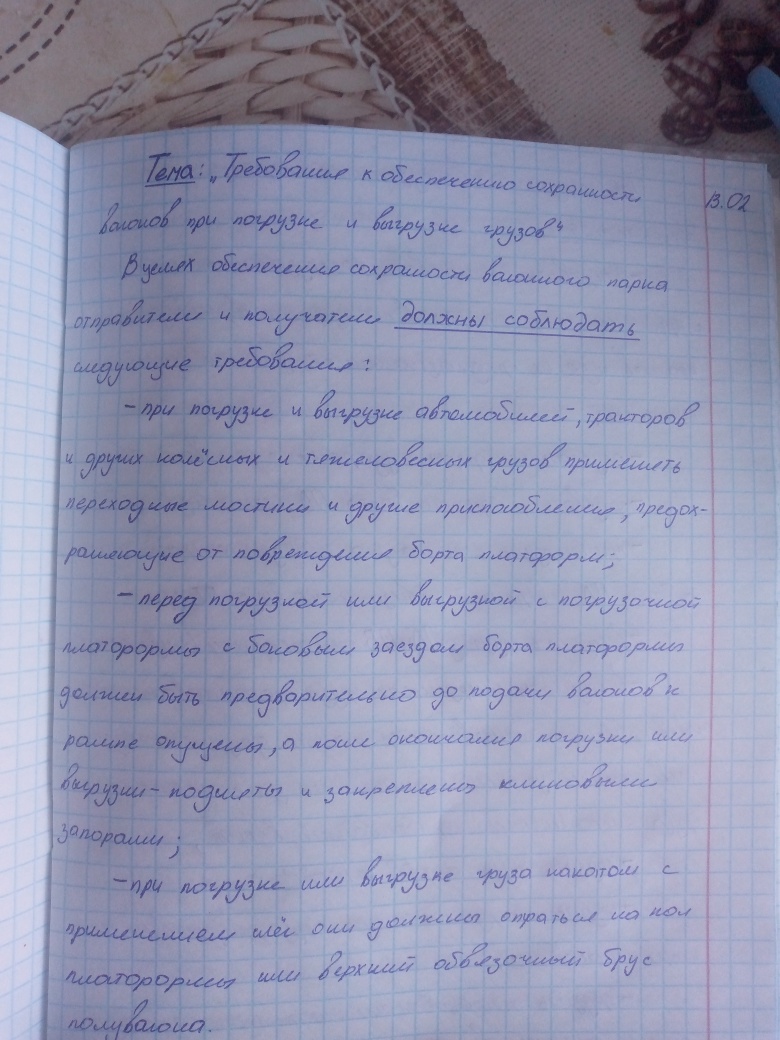 Тема: „Требования к обеспечению сохранности
13.02
вагонов при погрузке и выгрузке грузов“
В целях обеспечения сохранности вагонного парка
отправители и получатели должны соблюдать
следующие требования:
- при погрузке и выгрузке автомобилей, тракторов
и других колёсных и тяжеловесных грузов применять
переходные мостики и другие приспособления, предох-
раняющие от повреждения борта платформ;
- перед погрузкой или выгрузкой с погрузочной
платформы с боковым заездом борта платформы
должен быть предварительно до подачи вагонов к
рампе опущены, а после окончания погрузки или
выгрузки - подняты и закреплены клиновыми
запорами;
- при погрузке или выгрузке груза накатом с
применением слег они должны опраться на пол
платформы или верхний обвязочный брус
полувагона.